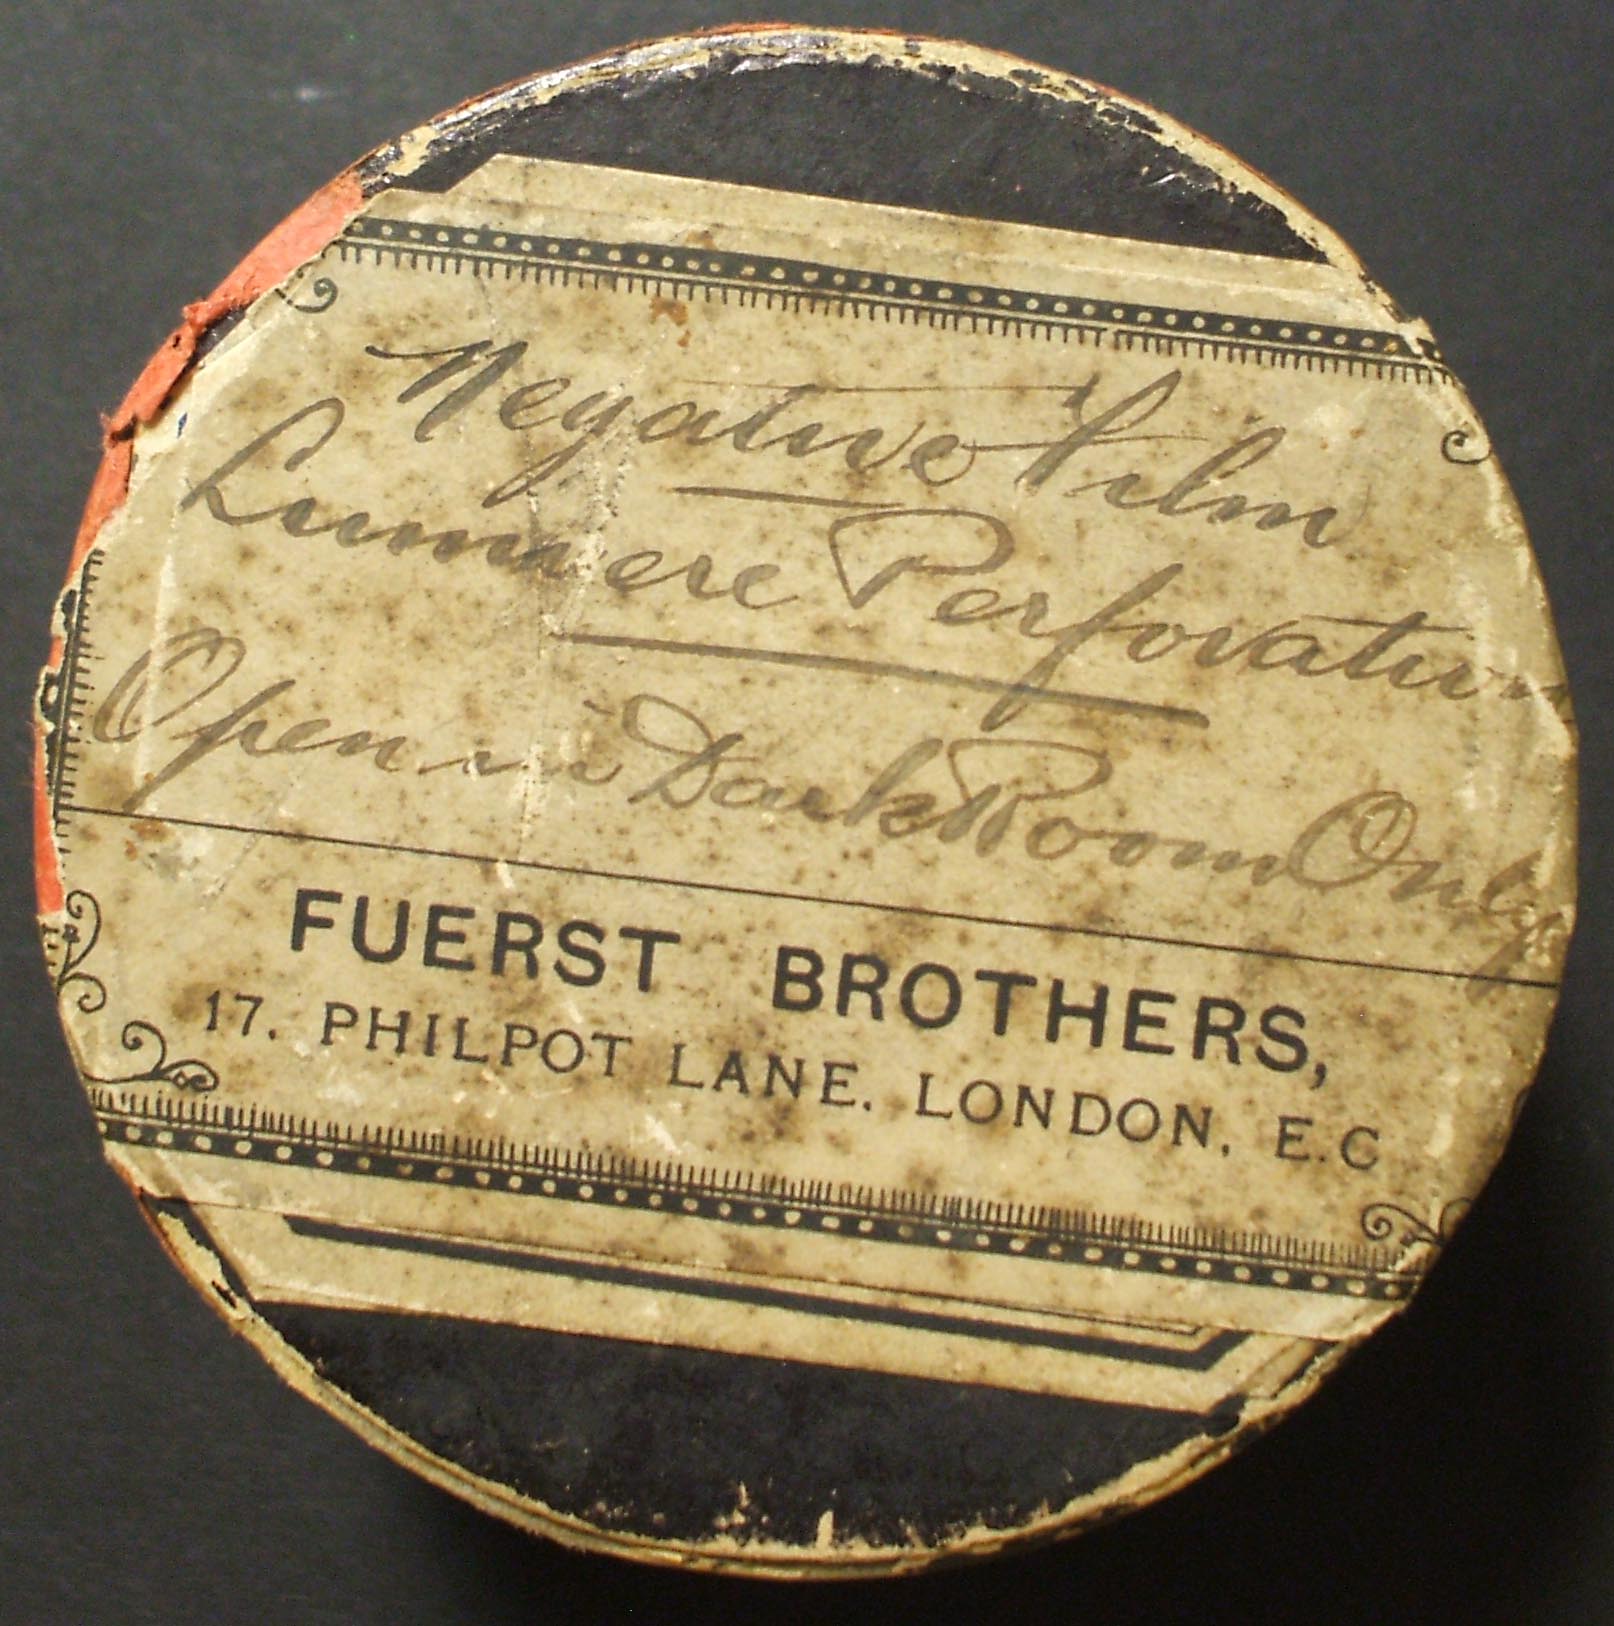 Negative Film
Lumiere Perforation
Open in Dark Room Only
FUERST BROTHERS,
17. PHILPOT LANE. LONDON. E.C